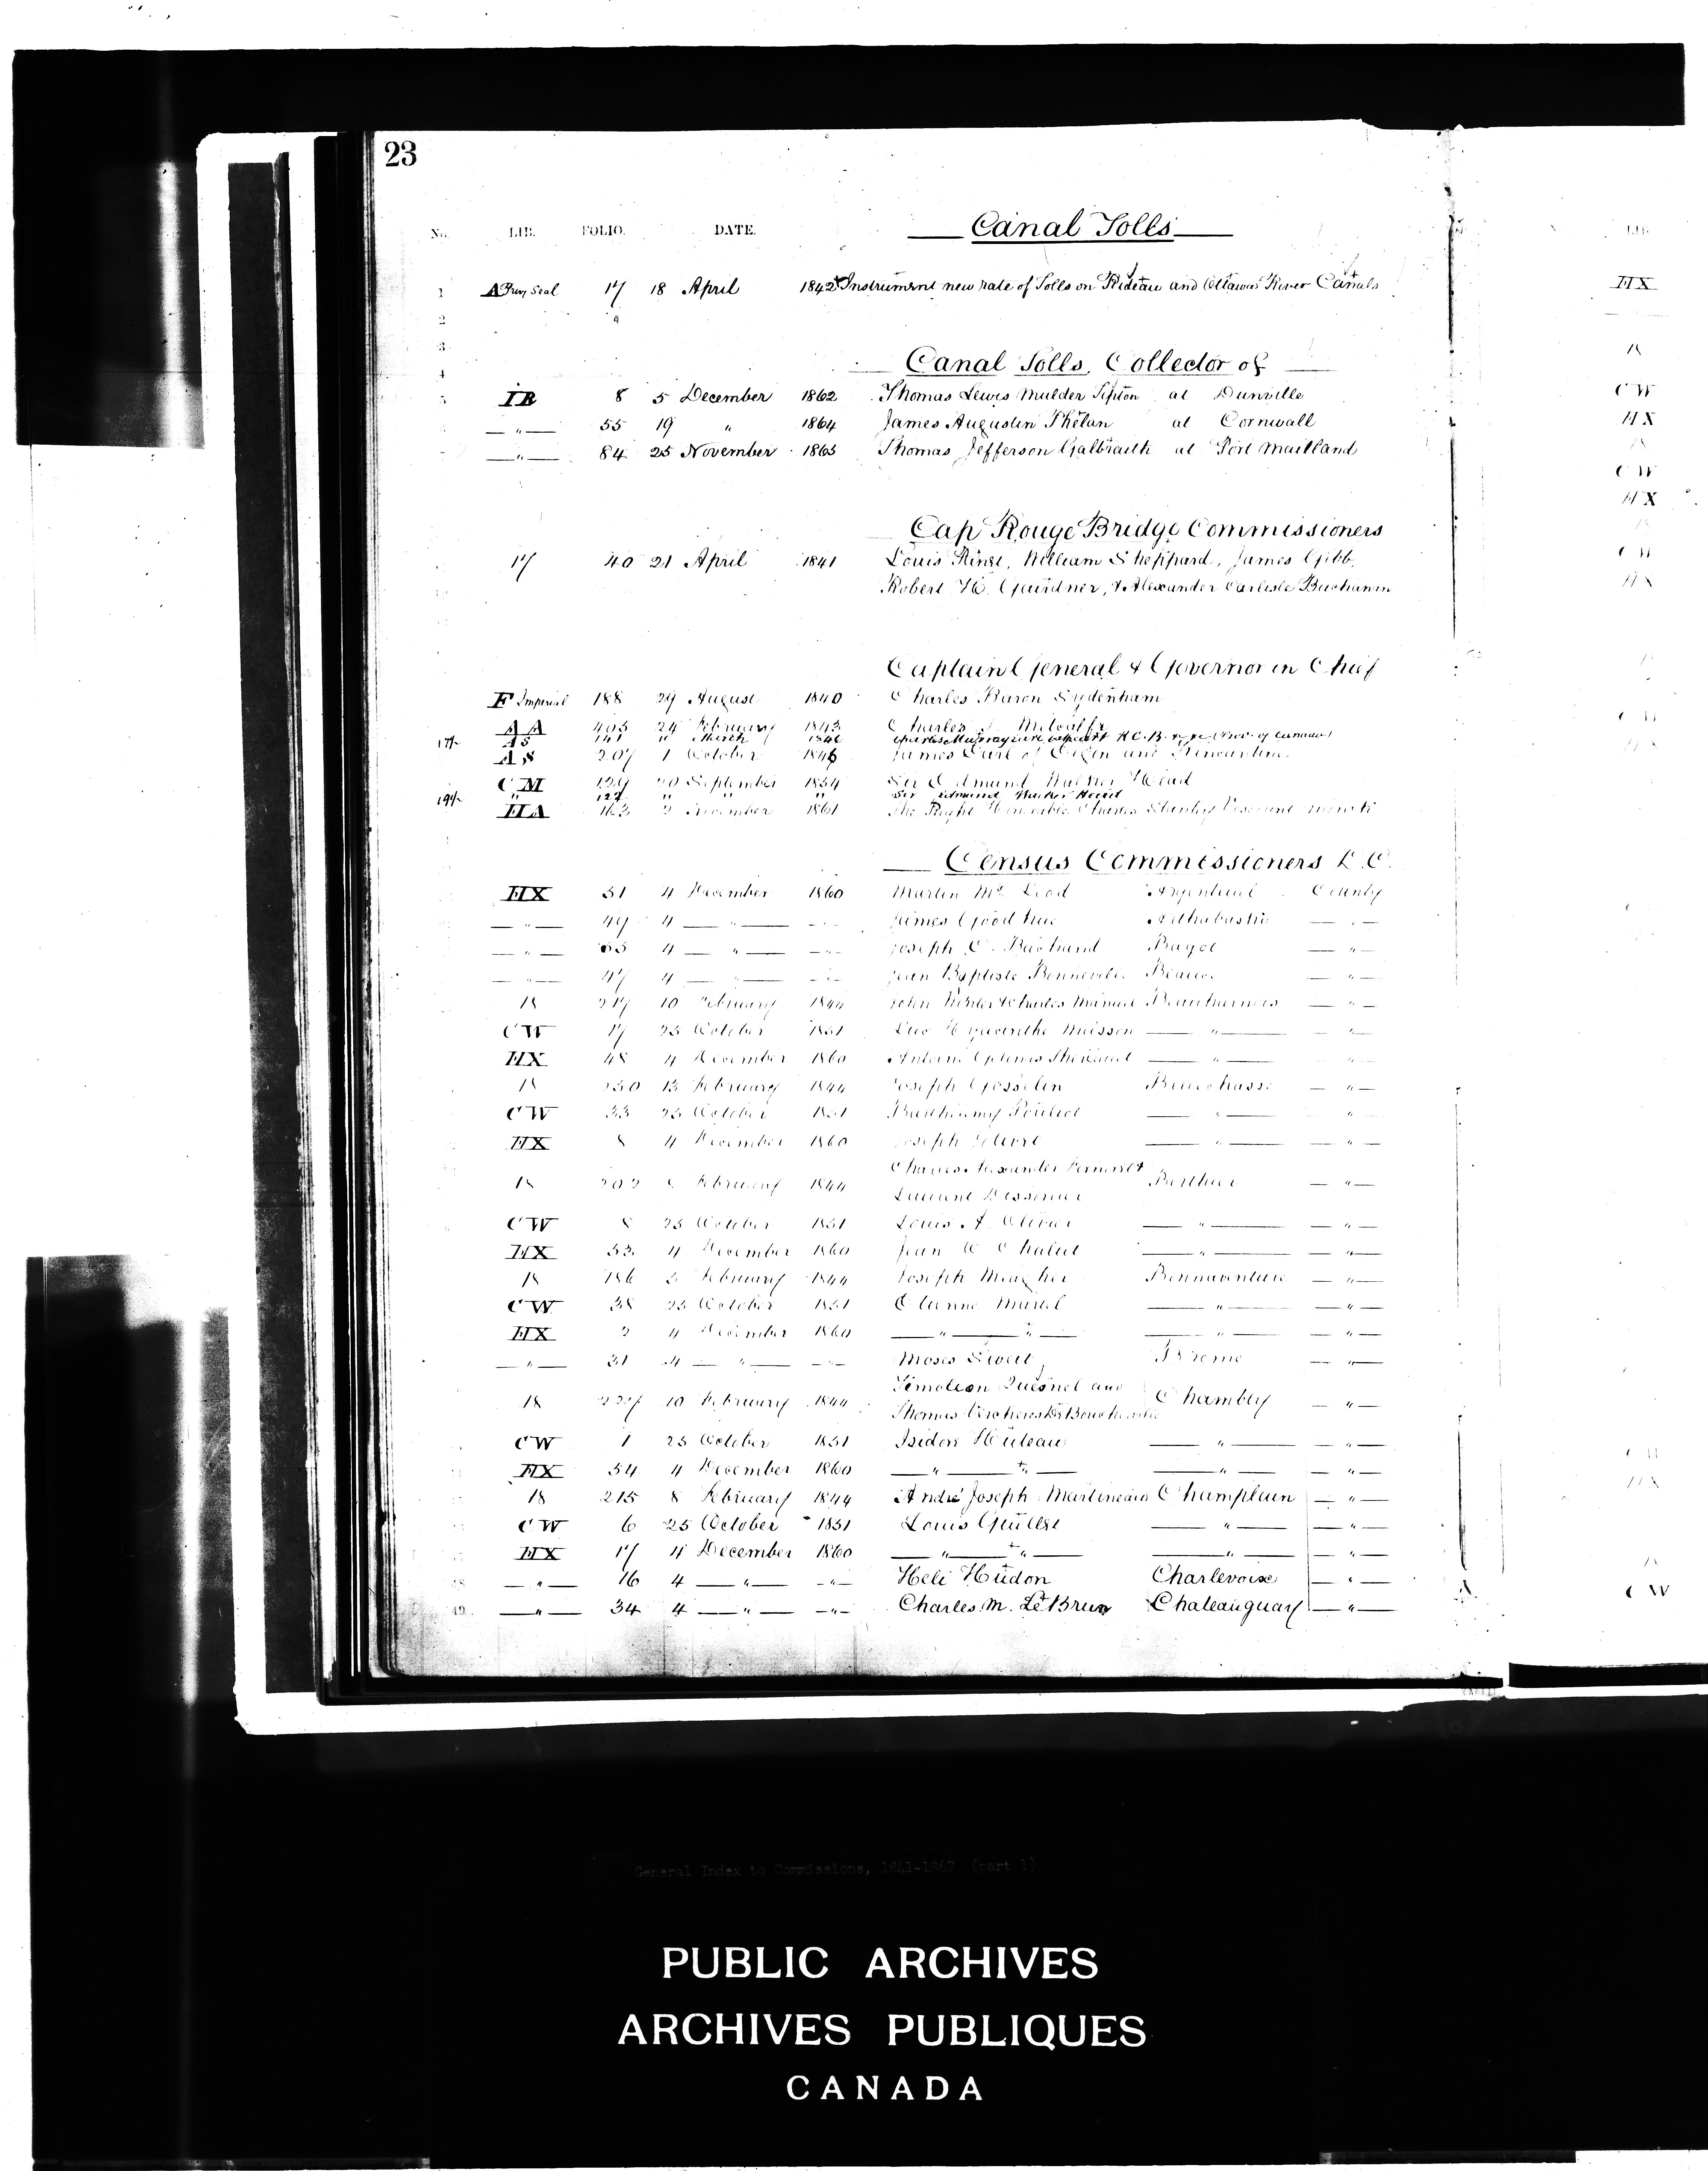 23
No. LIB. FOLIO. DATE. Canal Tolls
1 A Privy Seal 17 18 April 1842 Instrument new rate of Tolls on Rideau and Ottawa River Canals
2
3
Canal Tolls, Collector of
4
5 IB 8 5 December 1862 Thomas Lewis Mulder Sipton at Dunville
—"— 55 19 " 1864 James Augustin Phelan at Cornwall
—"— 84 25 November 1865 Thomas Jefferson Galbraith at Port Maitland
Cap Rouge Bridge Commissioners
17 40 21 April 1841 William Sheppard, James Gibb,
Robert H. Gairdner, & Alexander Carlisle Buchanan
Captain General & Governor in Chief
F Imperial 188 29 August 1840 Charles Baron Sydenham
AA 405 24 February 1843 Charles T. Metcalfe
AS 141 March 1846
AS 207 1 October 1846 James Earl of Elgin and Kincardine
CM 129 20 September 1854 Sir Edmund Walker Head
" 127 " " " Sir Edmund Walker Head
HA 163 2 November 1861 The Right Honorable Charles Stanley Viscount Monck
Census Commissioners L.C.
HX 51 4 December 1860 Martin McLeod Argenteuil County
—"— 49 4 —"— —"— James Goodhue Arthabaska —"—
—"— 65 4 —"— —"— Joseph C. Bachand Bagot —"—
—"— 47 4 —"— —"— Jean Baptiste Bonneville Beauce —"—
18 217 10 February 1844 John Winter & Charles Manuel Beauharnois —"—
CW 17 25 October 1851 Luc Hyacinthe Masson —"— —"—
HX 48 4 December 1860 —"— —"—
18 230 13 February 1844 Joseph Gosselin Bellechasse —"—
CW 33 25 October 1851 Barthélemy Pouliot —"— —"—
HX 8 4 December 1860 Joseph —"— —"—
Charles Alexander &
18 202 February 1844 Berthier —"—
Laurent
CW 8 25 October 1851 Louis A. Olivier —"— —"—
HX 53 4 December 1860 Jean O Chalut —"— —"—
18 186 5 February 1844 Joseph Meagher Bonnaventure —"—
CW 38 25 October 1851 Etienne Martel —"— —"—
HX 2 4 December 1860 —"— "— —"— —"—
—"— 31 4 —"— —"— Moses Sweet Brome —"—
Timoleon Quesnel and
18 227 10 February 1844 Chambly —"—
Thomas Verchères De Boucherville
CW 1 25 October 1851 Isidore Hurteau —"— —"—
HX 54 4 December 1860 —"— "— —"— —"—
18 215 8 February 1844 André Joseph Martineau Champlain —"—
CW 6 25 October 1851 Louis Guillet —"— —"—
HX 17 4 December 1860 —"— "— —"— —"—
—"— 16 4 —"— —"— Heli Hudon Charlevoix —"—
—"— 34 4 —"— —"— Charles M. LeBrun Chateauguay —"—
General Index to Commissions, 1841-1867 (part 1)
PUBLIC ARCHIVES
ARCHIVES PUBLIQUES
CANADA